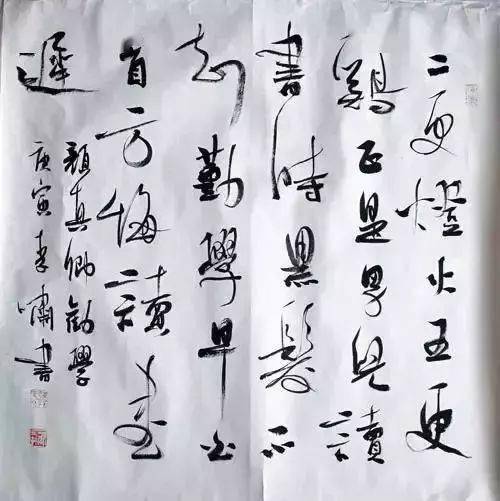 三更燈火五更
鷄正是男兒讀
書時黑髮不
知勤學早白
首方悔讀書
遲
顏真卿勸學
庚寅李嘯書